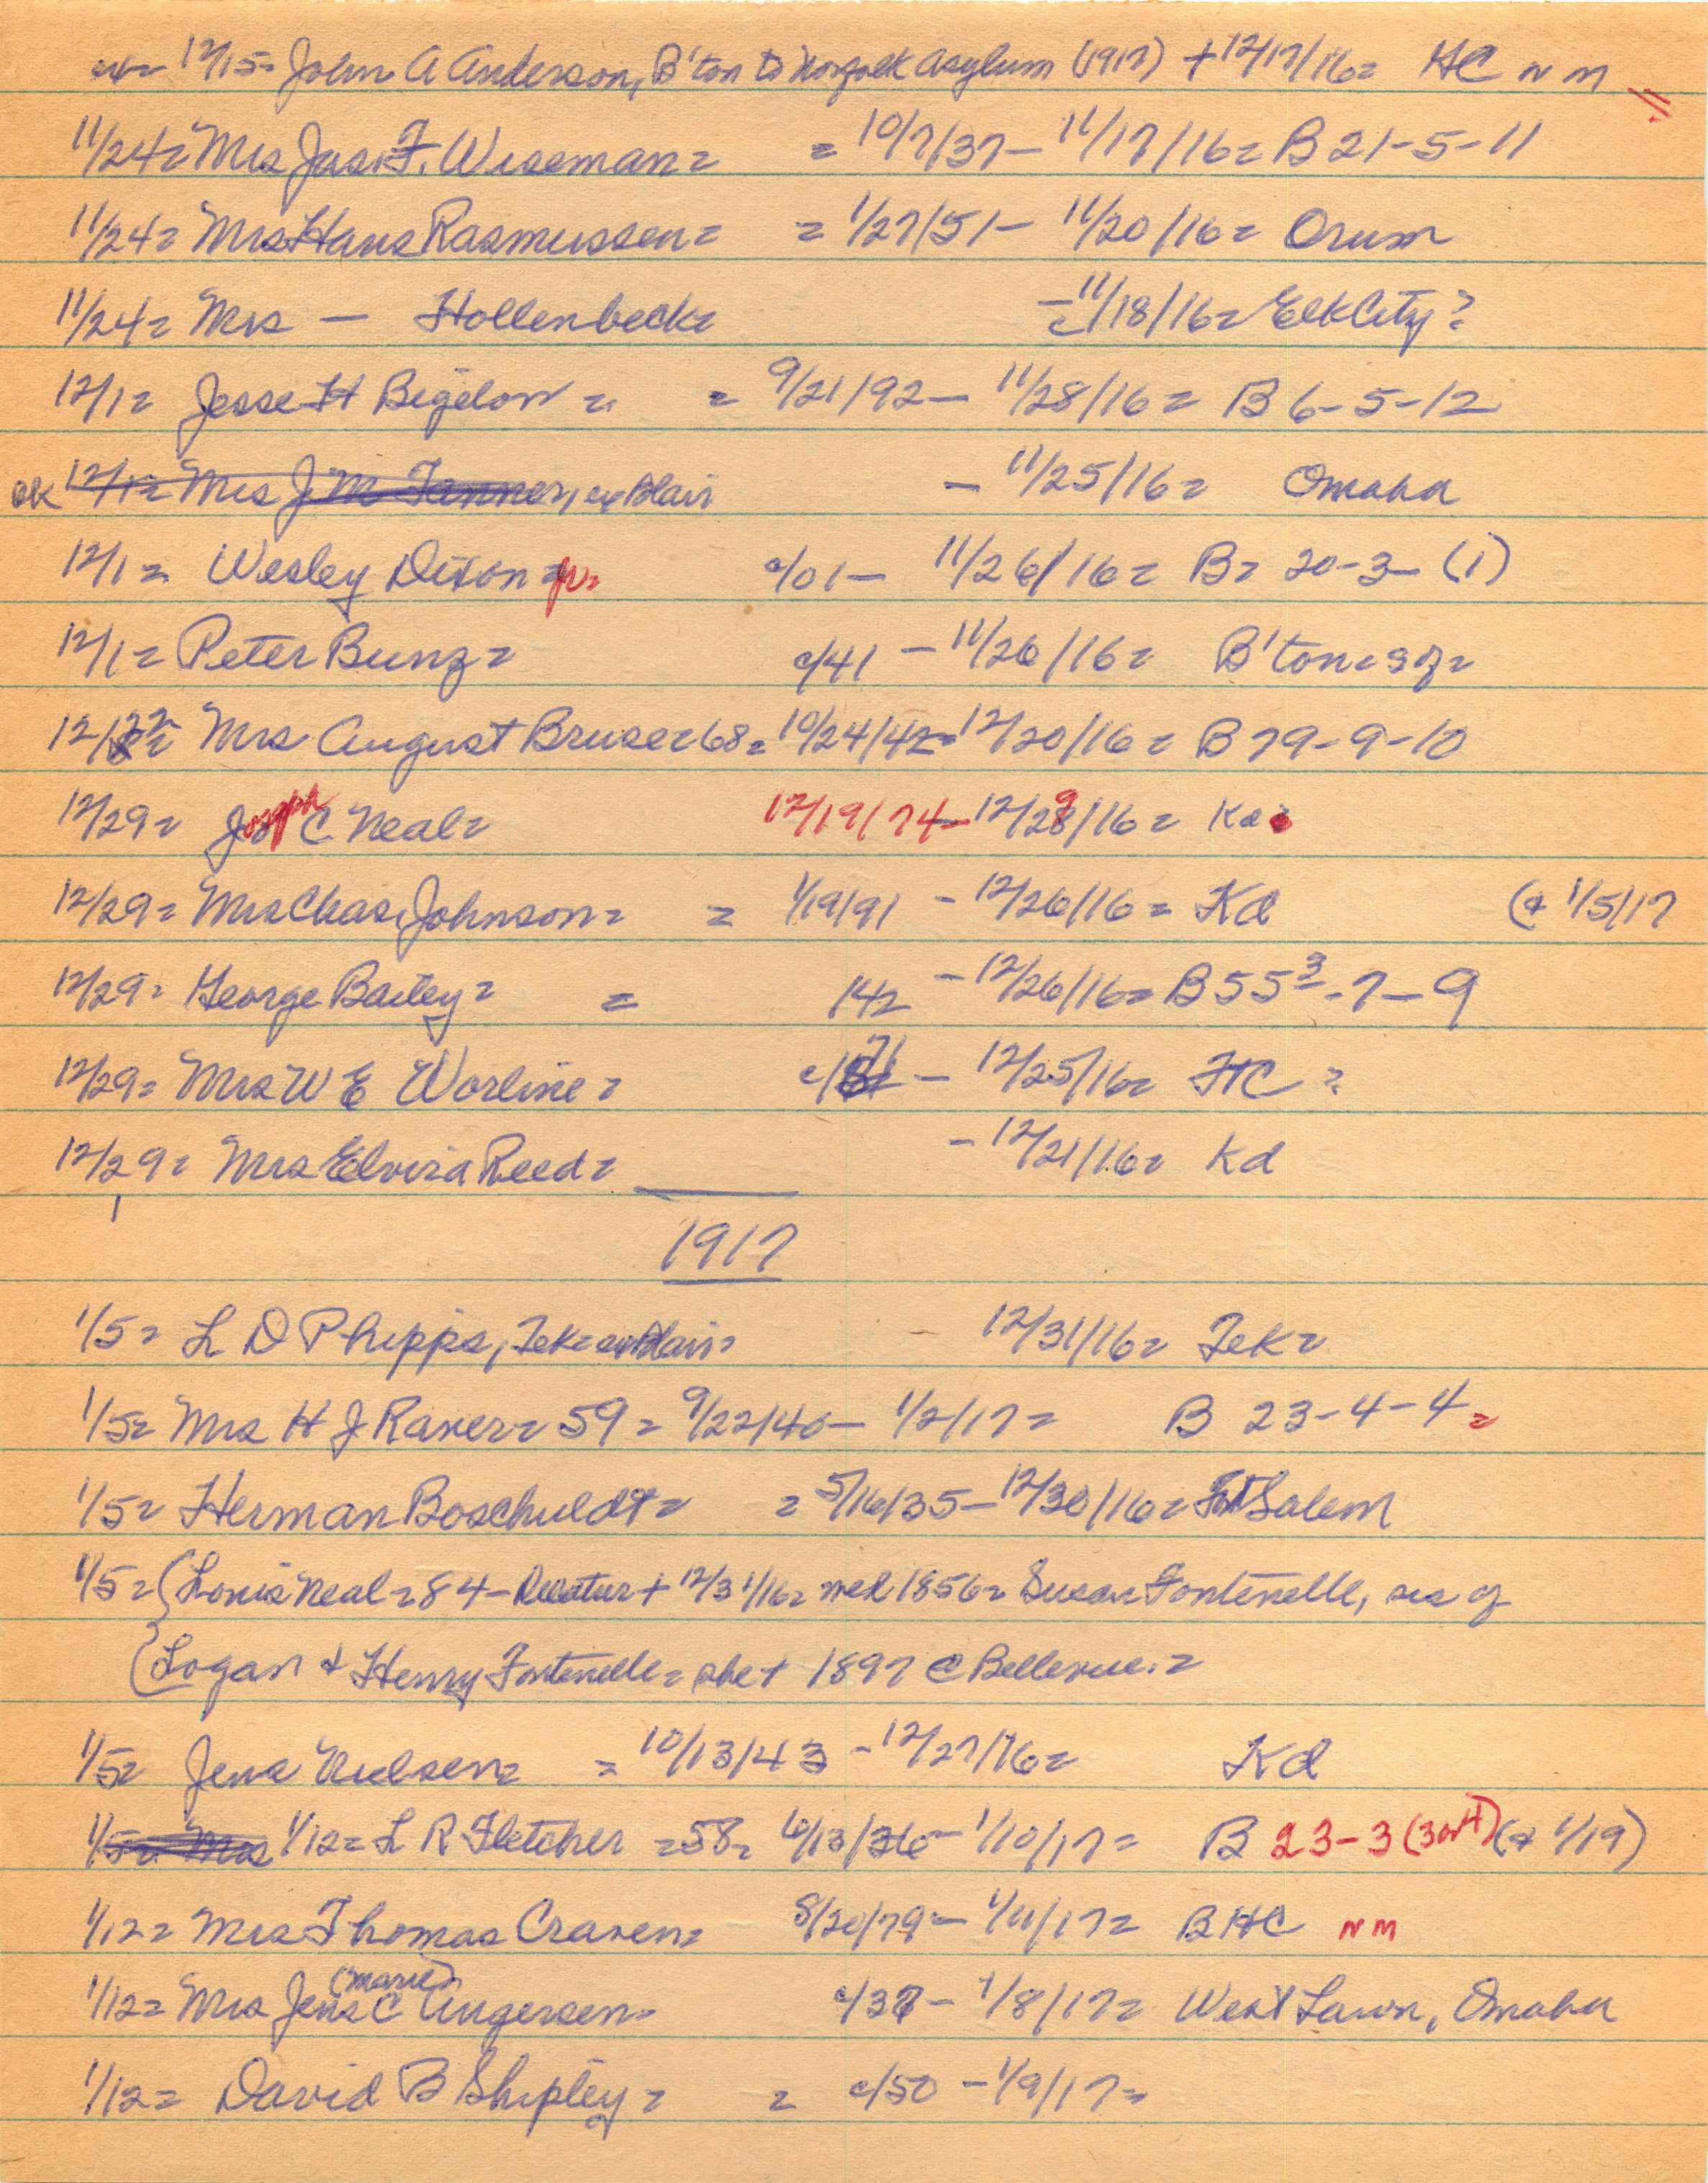 12/15= John A Anderson, B'ton to Norfolk Asylum (1917) + 12/17/16= HC N M
11/24= Mrs Jas. F. Wiseman= = 10/7/37- 11/17/16= B 21-5-11
11/24= Mrs Hans Rasmussen= = 1/27/51- 11/20/16= Orum
11/24= Mrs — Hollenbeck= - 11/18/16= Elk City?
12/1= Jesse H Bigelow= = 9/21/92- 11/28/16= B 6-5-12
OK 12/1= Mrs J M Tanner, ex Blair - 11/25/16= Omaha
12/1= Wesley Dixon Jr= c/01- 11/26/16= B= 20-3-(1)
12/1= Peter Bunz= c/41 - 11/26/16= B'ton=
12/22= Mrs August Bruse=68= 10/24/42= 12/20/16= B 79-9-10
12/29= Joseph C Neal= 12/19/74- 12/29/16= Kd=
12/29= Mrs Chas. Johnson= = 1/19/91 - 12/26/16= Kd (& 1/5/17
12/29= George Bailey= = 142 - 12/26/16= B 55³-7-9
12/29= Mrs W E Worline= c/71 - 12/25/16= HC ?
12/29= Mrs Elvira Reed= - 12/21/16= Kd
1917
1/5= L D Phipps, Tek= ex Blair= 12/31/16= Tek=
1/5= Mrs H J Raver= 59= 9/22/40- 1/2/17= B 23-4-4=
1/5= Herman Boschuldt= = 5/16/35- 12/30/16= Salem
1/5= (Louis Neal= 84- Decatur + 12/31/16= med 1856= Susan Fontenelle, sis of
(Logan & Henry Fontenelle= she + 1897 @ Bellevue.=
1/5= Jens Nielsen= = 10/13/43 - 12/27/16= Kd
1/5= Mrs 1/12= L R Fletcher =58= 6/13/36- 1/10/17= B 23-3 (3or4) (& 1/19)
1/12= Mrs Thomas Craven= 8/20/79- 1/11/17= B HC N M
1/12= Mrs Jens C (Marie) Angersen= c/38- 1/8/17= West Lawn, Omaha
1/12= David B Shipley= = c/50 - 1/9/17=